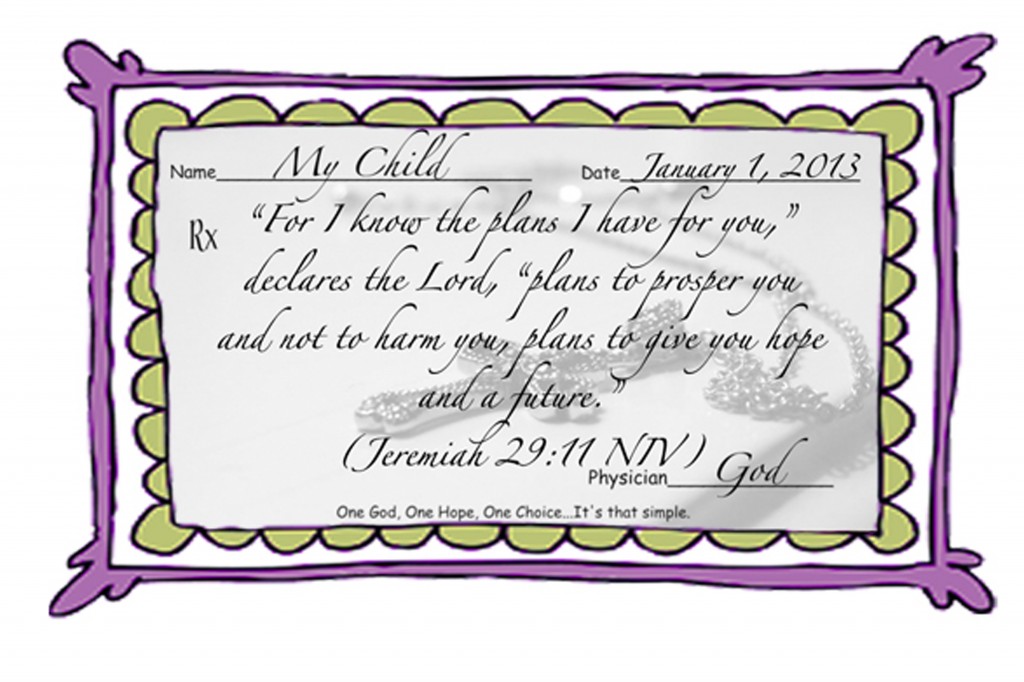 Name My Child Date January 1, 2013
Rx “For I know the plans I have for you,”
declares the Lord, “plans to prosper you
and not to harm you, plans to give you hope
and a future.”
(Jeremiah 29:11 NIV)
Physician God
One God, One Hope, One Choice...It's that simple.